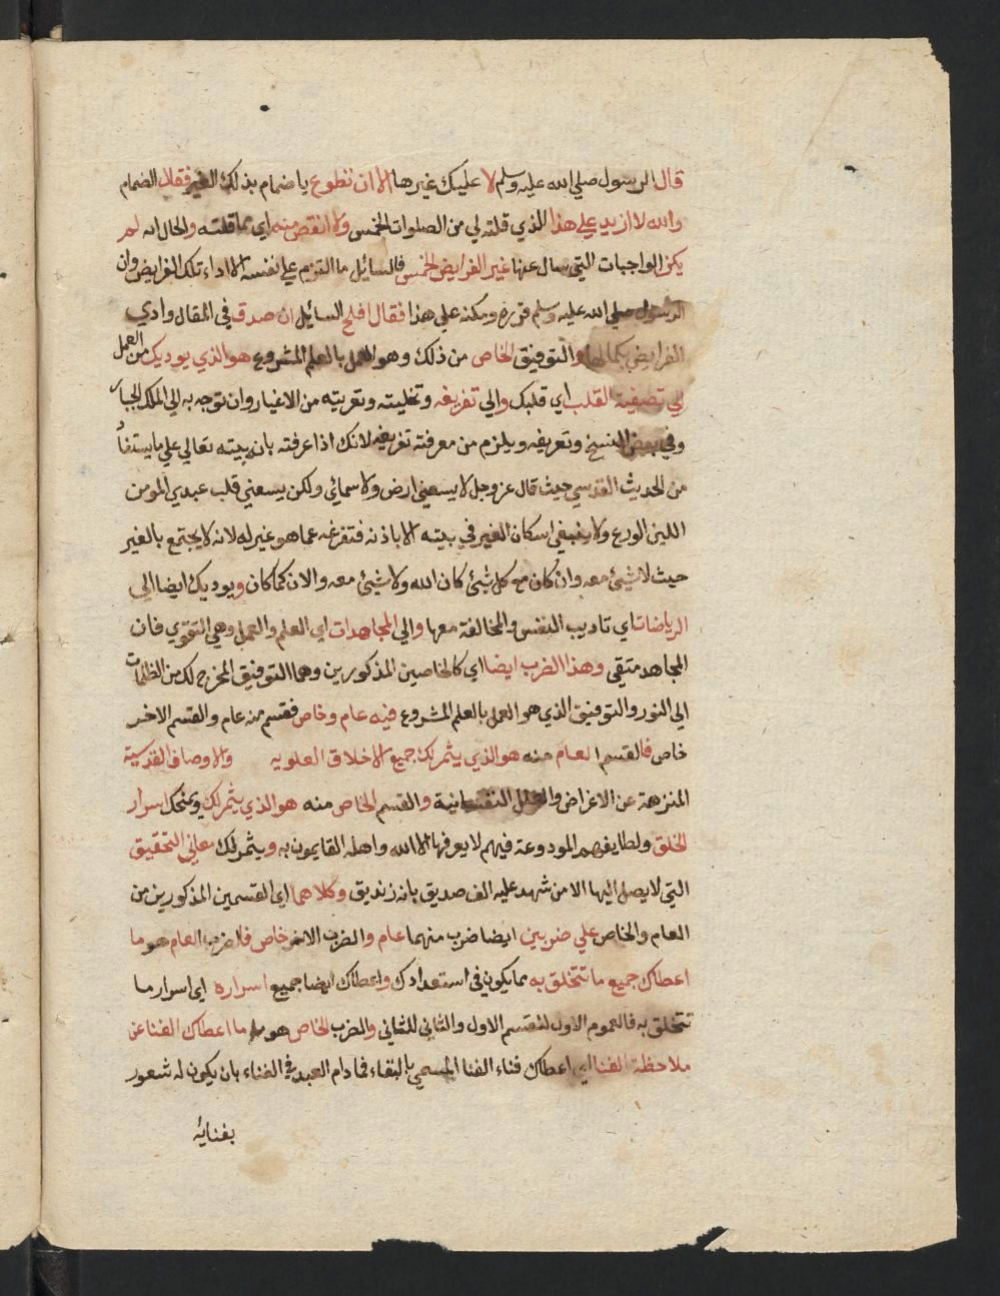 قال الرسول صلي الله عليه وسلم لا عليك غيرها الا ان تطوع يا ضمام بذلك الغير فقال الضمام
والله لا ازيد علي هذا الذي قلته لي من الصلوات الخمس ولا انقص منه اي مما قلته والحال انه لم
يكن الواجبات التي سال عنها غير الفرايض الخمس فالسائيل ما التزم علي نفسه الا اداء تلك الفرايض وان
الرسول صلي الله عليه وسلم قرره ومكنه علي هذا فقال افلح السائيل ان صدق في المقال وادي
الفرايض بكمالها والتوفيق الخاص من ذلك وهو العمل بالعلم المشروع هو الذي يوديك من العمل
الي تصفية القلب اي قلبك والي تفريغه وتخليته وتعريته من الاغيار وان توجه به الي الملك الجبار
وفي بعض النسخ وتعريفه ويلزم من معرفته تفريغه لانك اذا عرفته بانه بيته تعالي علي ما يستفاد
من الحديث القدسي حيث قال عز وجل لا يسعني ارض ولا سمائي ولكن يسعني قلب عبدي المومن
اللين الورع ولا ينبغي اسكان الغير في بيته الا باذنه فتفرغه عما هو غير له لانه لا يجتمع بالغير
حيث لا شيئ معه وان كان مع كل شيئ كان الله ولا شيئ معه والان كما كان ويوديك ايضا الي
الرياضات اي تاديب النفس والمخالفة معها والي المجاهدات اي العلم والعمل وهي التقوي فان
المجاهد متقي وهذا الضرب ايضا اي كالخاصين المذكورين وهما التوفيق المخرج لك من الظلمات
الي النور والتوفيق الذي هو العمل بالعلم المشروع فيه عام وخاص فقسم منه عام والقسم الاخر
خاص فالقسم العام منه هو الذي يثمر لك جميع الاخلاق العلويه والاوصاف القدسية
المنزهة عن الاعراض والعلل النفسانية والقسم الخاص منه هو الذي يثمر لك ويمنحك اسرار
الخلق ولطايفهم المودوعة فيهم لا يعرفها الا الله واهله القايمون به ويثمر لك معاني التحقيق
التي لا يصل اليها الا من شهد عليه الف صديق بانه زنديق وكلاهما اي القسمين المذكورين من
العام والخاص علي ضربين ايضا ضرب منهما عام والضرب الاخر خاص فالضرب العام هو ما
اعطاك جميع ما تتخلق به مما يكون في استعدادك واعطاك ايضا جميع اسراره اي اسرار ما
تتخلق به فالعموم الاول للقسم الاول والثاني للثاني والضرب الخاص هو ما اعطاك الفنا عن
ملاحظة الفنا اي اعطاك فناء الفنا المسمي بالبقاء فما دام العبد في الفناء بان يكون له شعور
بفنايه